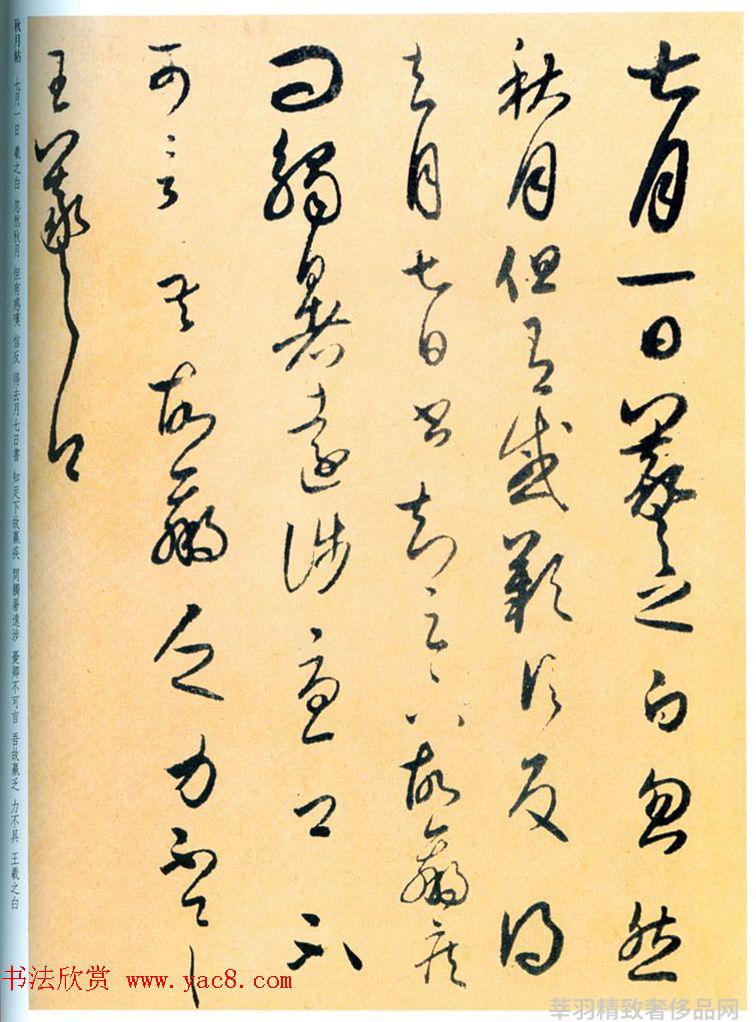 七月一日羲之白忽然
秋月但有感叹信反得
去月七日书知足下故羸疾
问触暑远涉忧卿不
可言吾故羸乏力不具
王羲之白
秋月帖 七月一日 羲之白 忽然秋月 但有感嘆 信反 得去月七日書 知足下故羸疾 問觸暑遠涉 憂卿不可言 吾故羸乏 力不具 王羲之白
书法欣赏 www.yac8.com
莘羽精致奢侈品网